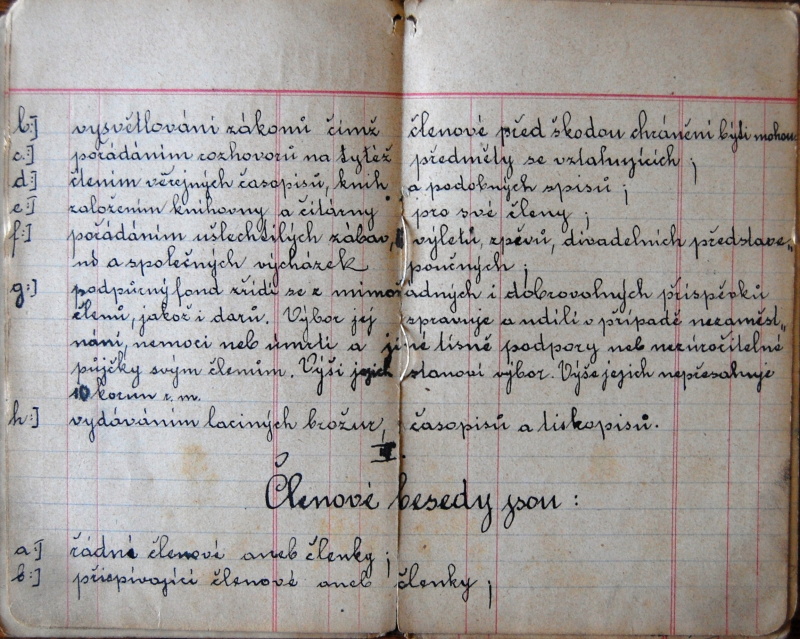 b:] vysvětlování zákonů čímž členové před škodou chráněni býti mohou
c:] pořádáním rozhovorů na tytéž předměty se vztahujících ;
d:] čtením věrejných časopisů, knih a podobných spisů ;
e:] založením knihovny a čítárny pro své členy ;
f:] pořádáním ušlechtilých zábav, výletů, zpěvů, divadelních představe„
ní a společných výcházek poučných ;
g:] podpůrný fond zřídí se z mimořádných i dobrovolných příspěvků
členů, jakož i darů. Výbor jej spravuje a udílí v případě nezaměst„
nání, nemoci neb úmrtí a jiné tísně podpory neb nezúročitelné
půjčky svým členům. Výši jejich stanoví výbor. Výše jejich nepřesahuje
10 korun r. m.
h:] vydáváním laciných brožur, časopisů a tiskopisů.
II.
Členové besedy jsou :
a:] řádné členové aneb členky ;
b:] přispívající členové aneb členky ;